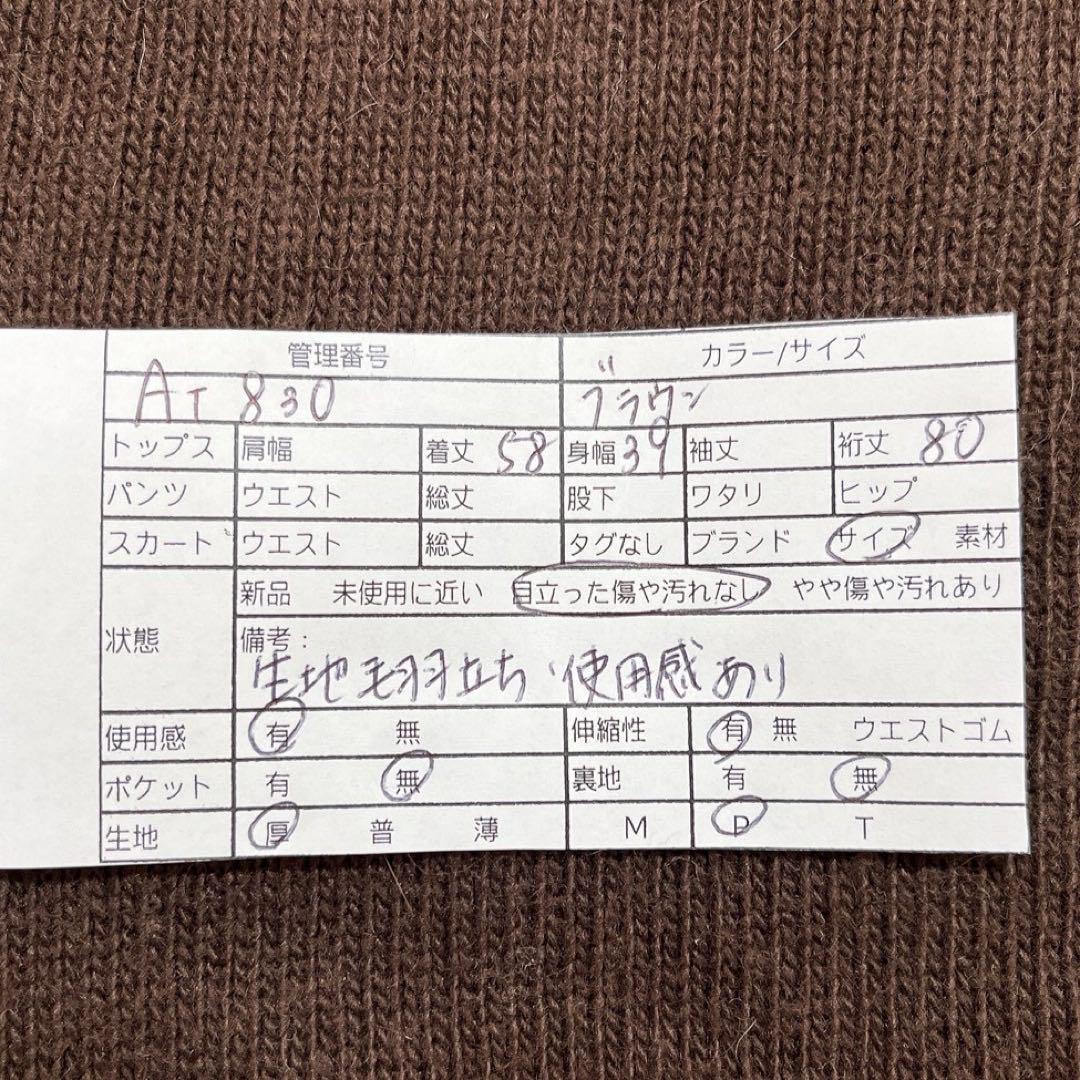 管理番号 カラー/サイズ
AT 830 ブラウン
トップス 肩幅 着丈 58 身幅 39 袖丈 裄丈 80
パンツ ウエスト 総丈 股下 ワタリ ヒップ
スカート ウエスト 総丈 タグなし ブランド サイズ 素材
新品 未使用に近い 目立った傷や汚れなし やや傷や汚れあり
状態 備考：
生地毛羽立ち、使用感あり
使用感 有 無 伸縮性 有 無 ウエストゴム
ポケット 有 無 裏地 有 無
生地 厚 普 薄 M P T